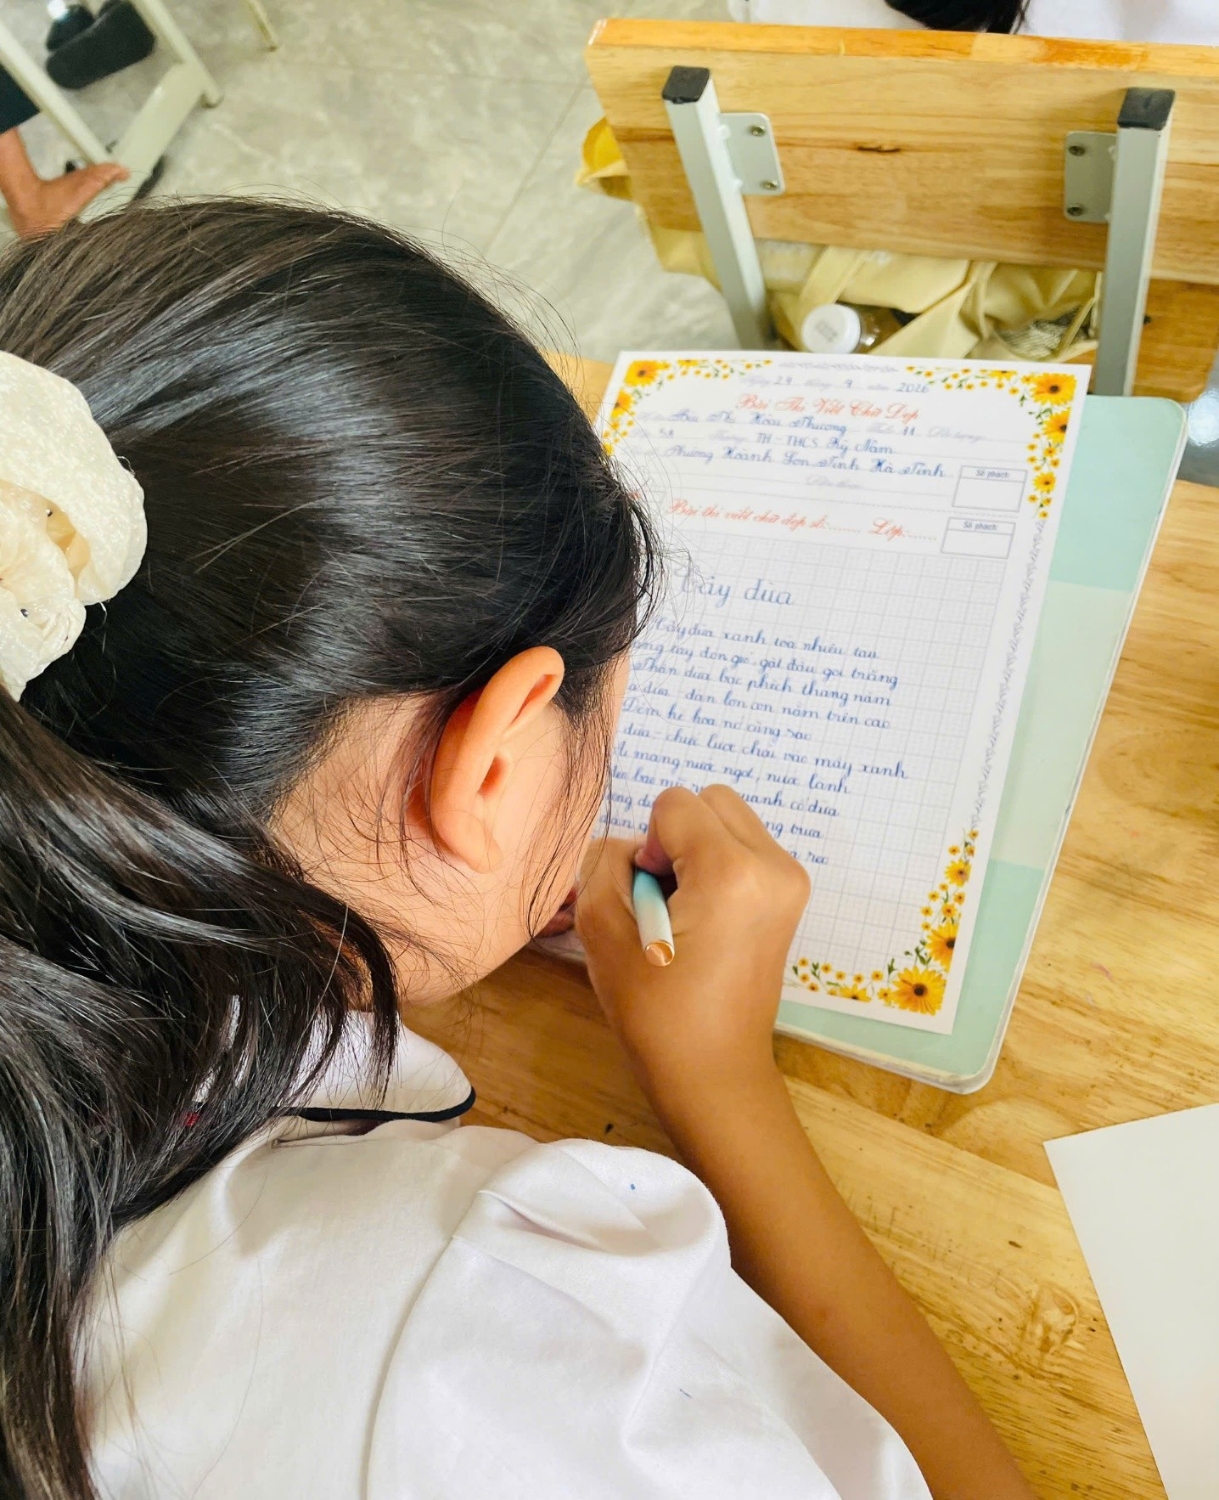 Ngày 29 tháng 9 năm 2026
Bài Thi Viết Chữ Đẹp
Bùi Thị Hoài Thương 11
5A TH-THCS Kỳ Nam
Phường Hoành Sơn Tỉnh Hà Tĩnh
Số phách
Bài thi viết chữ đẹp số:...... Lớp:......
Số phách
Cây dừa
Cây dừa xanh toả nhiều tàu
ang tay đón gió, gật đầu gọi trăng
Thân dừa bạc phếch tháng năm
dừa - đàn lợn con nằm trên cao
Đêm hè hoa nở cùng sao
dừa - chiếc lược chải vào mây xanh
mang nước ngọt, nước lành
quanh cổ dừa
trưa
đàn